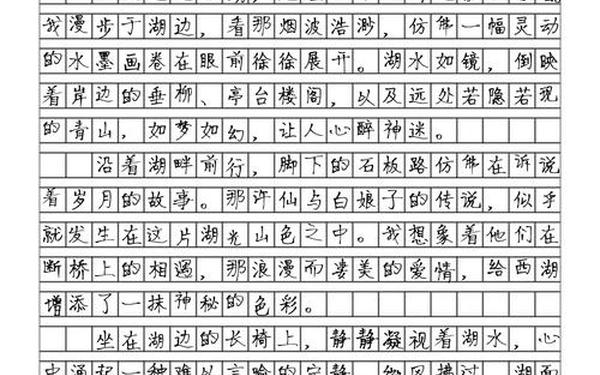 我漫步于湖边，看那烟波浩渺，仿佛一幅灵动
的水墨画卷在眼前徐徐展开。湖水如镜，倒映
着岸边的垂柳、亭台楼阁，以及远处若隐若现
的青山，如梦如幻，让人心醉神迷。
沿着湖畔前行，脚下的石板路仿佛在诉说
着岁月的故事。那许仙与白娘子的传说，似乎
就发生在这片湖光山色之中。我想象着他们在
断桥上的相遇，那浪漫而凄美的爱情，给西湖
增添了一抹神秘的色彩。
坐在湖边的长椅上，静静凝视着湖水，心
中涌起一种难以言喻的宁静。微风拂过，湖面